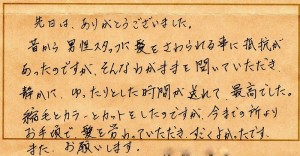 先日は、ありがとうございました。
昔から男性スタッフに髪をさわられる事に抵抗が
あったのですが、そんなわがままを聞いていただき、
静かに、ゆったりとした時間が送れて、最高でした。
縮毛とカラーとカットをしたのですが、今までの所より
お手頃で、髪を労わっていただき、すごくよかったです。
また、お願いします。